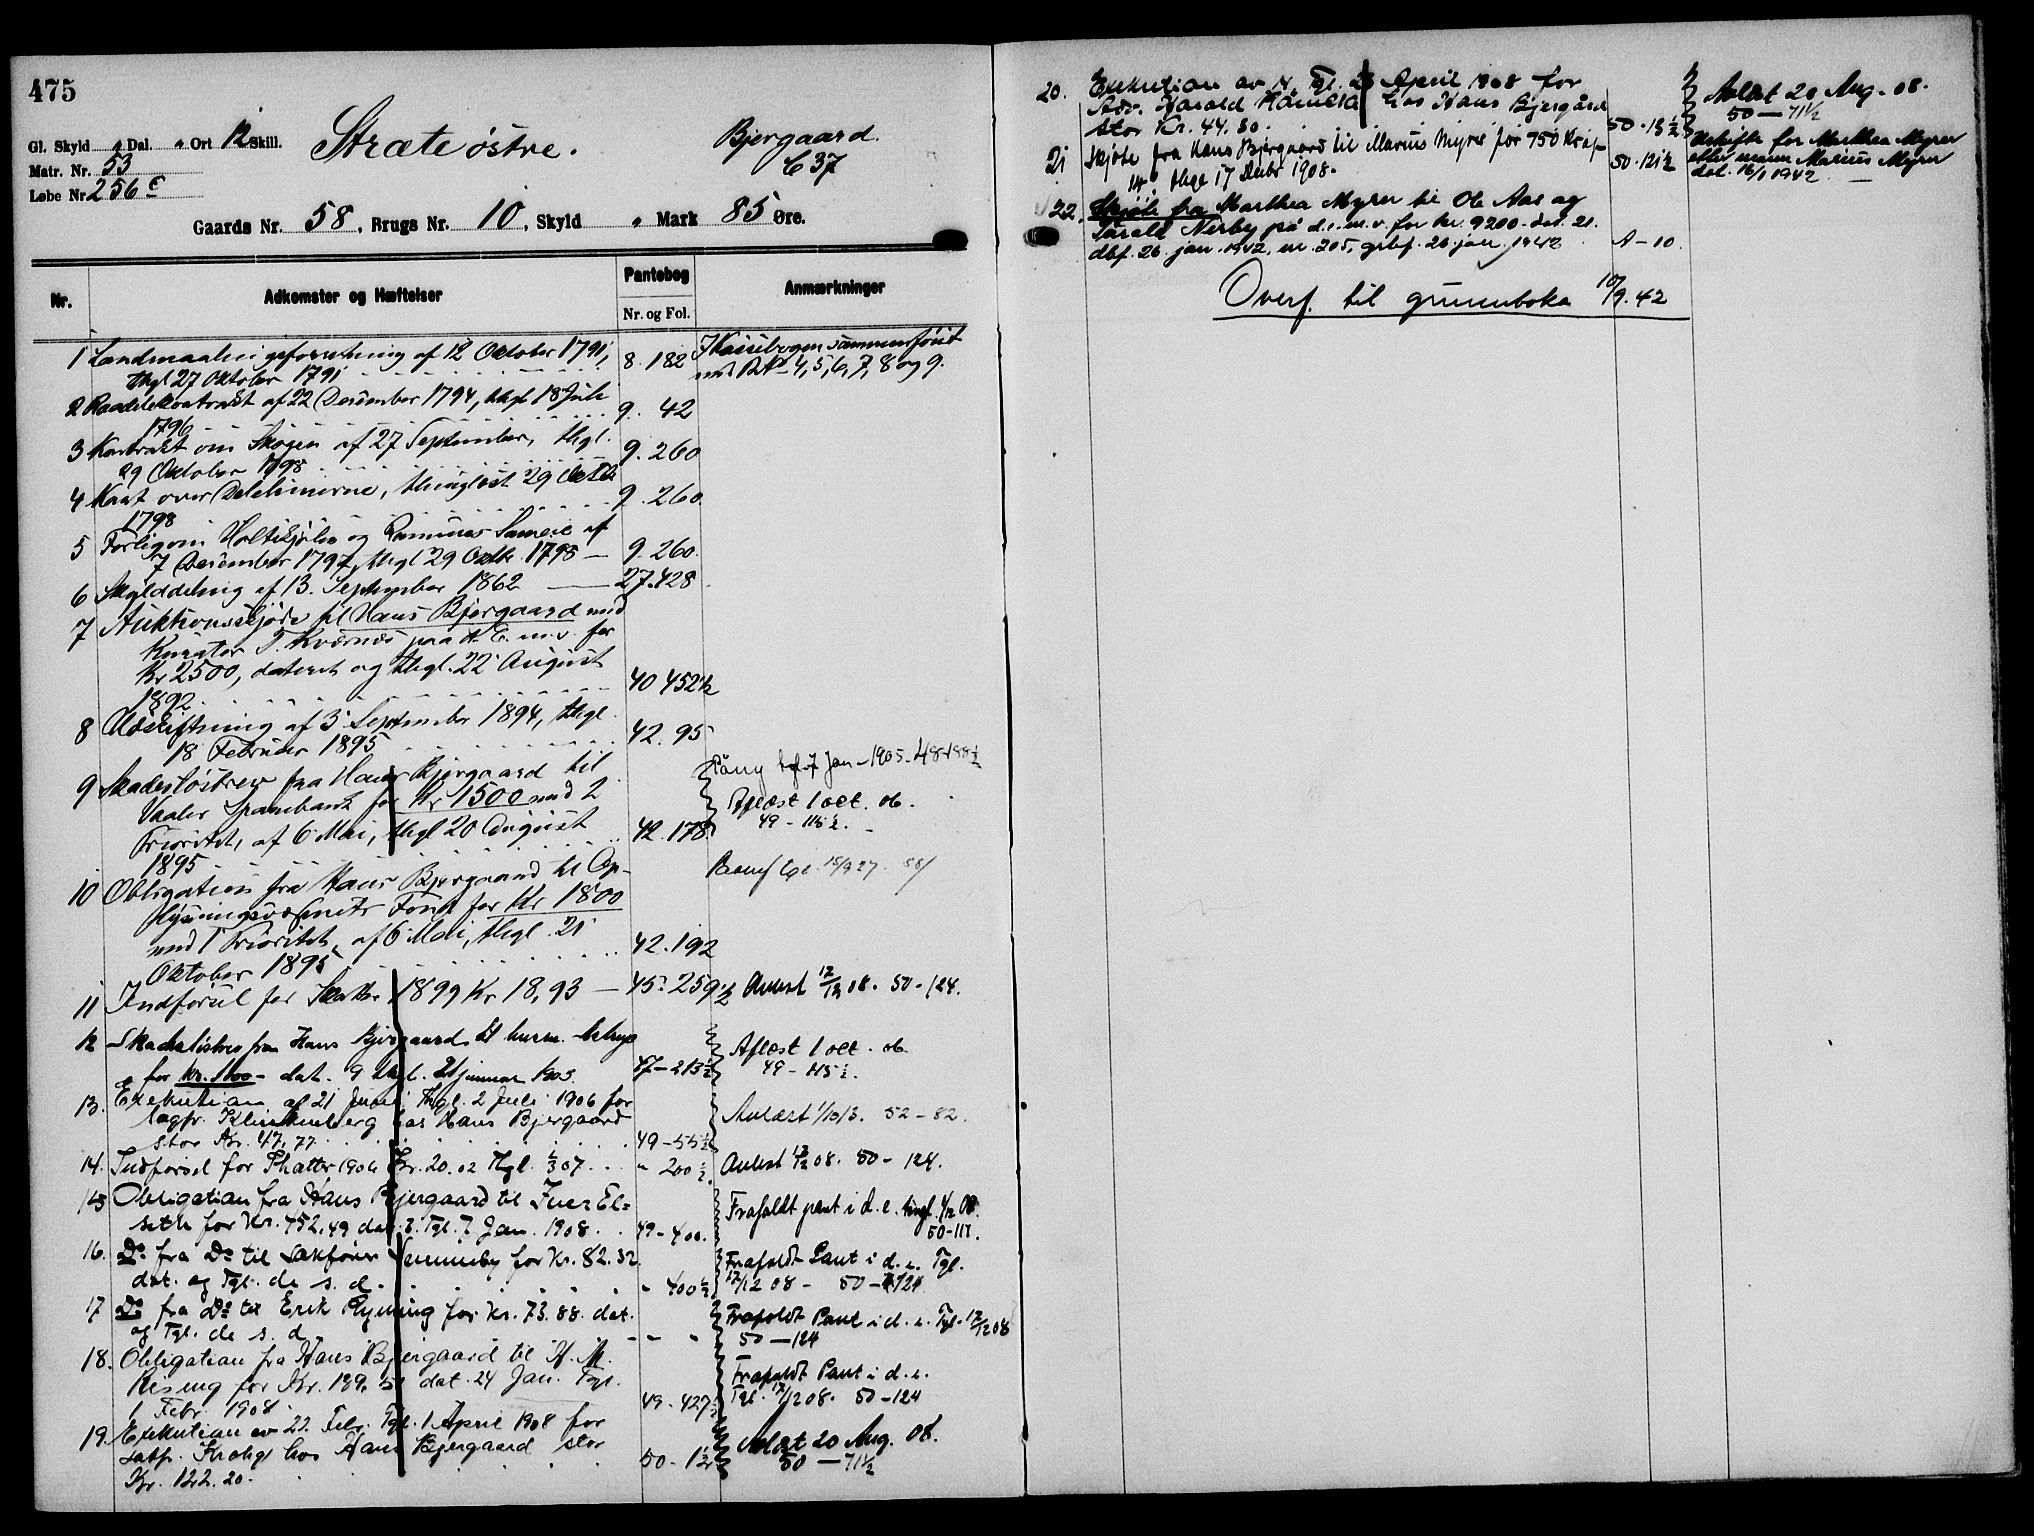 475
Gl. Skyld " Dal. " Ort 12 Skill.
Matr. Nr. 53
Løbe Nr. 256 c
Stræte østre.
Bjergaard
C 37
Gaards Nr. 58, Brugs Nr. 10, Skyld " Mark 85 Øre.
Nr.
Adkomster og Hæftelser
Pantebog
Nr. og Fol.
Anmærkninger
1 Landmaalingsforretning af 12 Oktober 1791,
thgl 27 Oktober 1791 8. 182
I Kassebogen sammenført
med B.N. 4, 5, 6, 7, 8 og 9.
2 Raadelekontrakt af 22 December 1794, thgl 18 Juli
1796 9. 42
3 Kontrakt om Skogen af 27 September, thgl.
29 Oktober 1798 9. 260
4 Kart over Delelinierne, thinglæst 29 Oktbr
1798 9. 260.
5 Forlig om Sameie af
7 December 1797, thgl 29 Oktbr. 1798 — 9. 260.
6 Skylddeling af 13. September 1862 — 27.428.
7 Auktionsskjøde til Hans Bjergaard med
Kurator T. Kværnes paa d. E. m. v. for
Kr 2500, dateret og thgl. 22 August
1892 40 452 1/2
8 Udskiftning af 3 September 1894, thgl
18 Februar 1895 42. 95
9 Skadesløsbrev fra Hans Bjergaard til
Vaaler Sparebank for Kr 1500 med 2
Prioritet, af 6 Mai, thgl 20 August
1895 42. 178.
7 Jan. 1905. 48-198 1/2
Aflæst 1 oct. 06.
49 - 115 1/2.
10 Obligation fra Hans Bjergaard til Op-
lysningsvæsenets Fond for Kr 1800
med 1 Prioritet, af 6 Mai, thgl. 21
Oktober 1895 42. 192
15/9 27.
11 Indførsel for Skatter 1899 Kr 18,93 — 45. 259 1/2
Avlæst 17/12 08. 50 - 124.
12 Skadesløsbrev fra Hans Bjergaard til
for Kr. 1100 - dat. 9 thgl. 21 januar 1903. 47-213 1/2
Aflæst 1 oct. 06
49 - 115 1/2.
13. Exekution af 21 Juni, Thgl. 2 Juli 1906 for
sagfr. Klinkenberg hos Hans Bjergaard
stor Kr. 47, 77. 49-55 1/2
Avlæst 1/10 13. 52-82.
14. Indførsel for Skatter 1906 Kr. 20.02 Thgl. 1/3 07. " 200 1/2
Avlæst 17/12 08. 50 - 124.
15 Obligation fra Hans Bjergaard til Iver El-
seth for Kr. 752,49 dat. 3. Tgl. 7. Jan. 1908. 49-400.
Frafaldt pant i d. e. tingl. 1/12 08.
50-111.
16. Do fra Do til Sakfører Vennneby for Kr. 82.32.
dat. og Tgl. de s. d. " 400 1/2
Frafaldt Pant i d. e. Tgl.
17/12 08 - 50-124
17 Do fra Do til Erik Ryming for Kr. 73.88. dat.
og Tgl. de s. d. " - "
Frafaldt Pant i d. e. Tgl. 17/12 08
50-124
18. Obligation fra Hans Bjergaard til H. M.
Kiseng for Kr. 189.50 dat. 24 Jan. Tgl.
1 Febr. 1908. 49-427 1/2
Frafaldt Pant i d. e.
Tgl. 17/12 08. 50-124
19. Exekution av 22. Febr. Tgl. 1 April 1908 for
hos Hans Bjergaard stor
Kr. 122.20. 50-1 1/2
Avlæst 20 Aug. 08.
50-71 1/2
20. Exekution av 4, Tgl. 23 April 1908 for
Adv. Harald hos Hans Bjergård
stor Kr. 44.80. 50-18 1/2
Avlæst 20 Aug. 08.
50-71 1/2
21 Skjøte fra Hans Bjergaard til Marius Myrer for 750 Kr af
14 thgl 17 Decbr 1908. 50-121 1/2
Uskifte for Marthea Myrer
etter mann Marius Myrer
dat. 16/1 1942. —
22. Skjøte fra Marthea Myrer til Ole Aas og
Harald Nerby på d. e. m. v. for kr. 9200. dat. 21.
dbf. 26. jan. 1942, nr. 205, grbf. 26. jan. 1942 A-10.
Overf. til grunnboka 10/9. 42